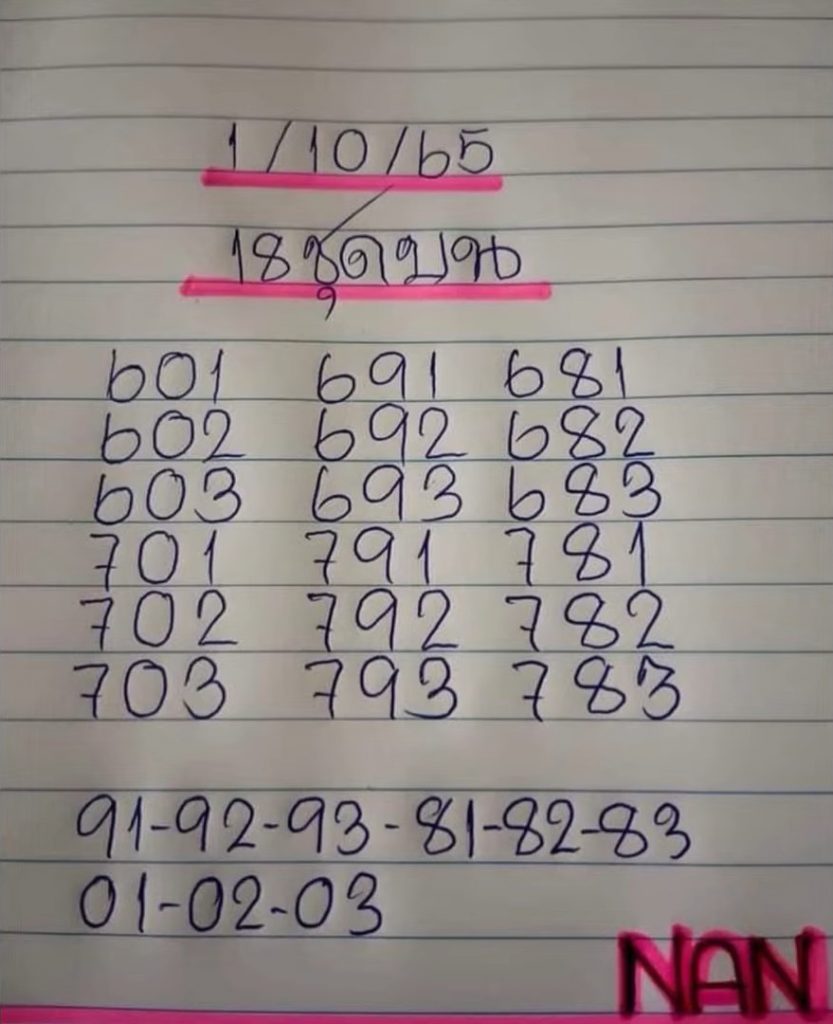 1/10/65
18ชุดบน
601 691 681
602 692 682
603 693 683
701 791 781
702 792 782
703 793 783
91-92-93-81-82-83
01-02-03
NAN